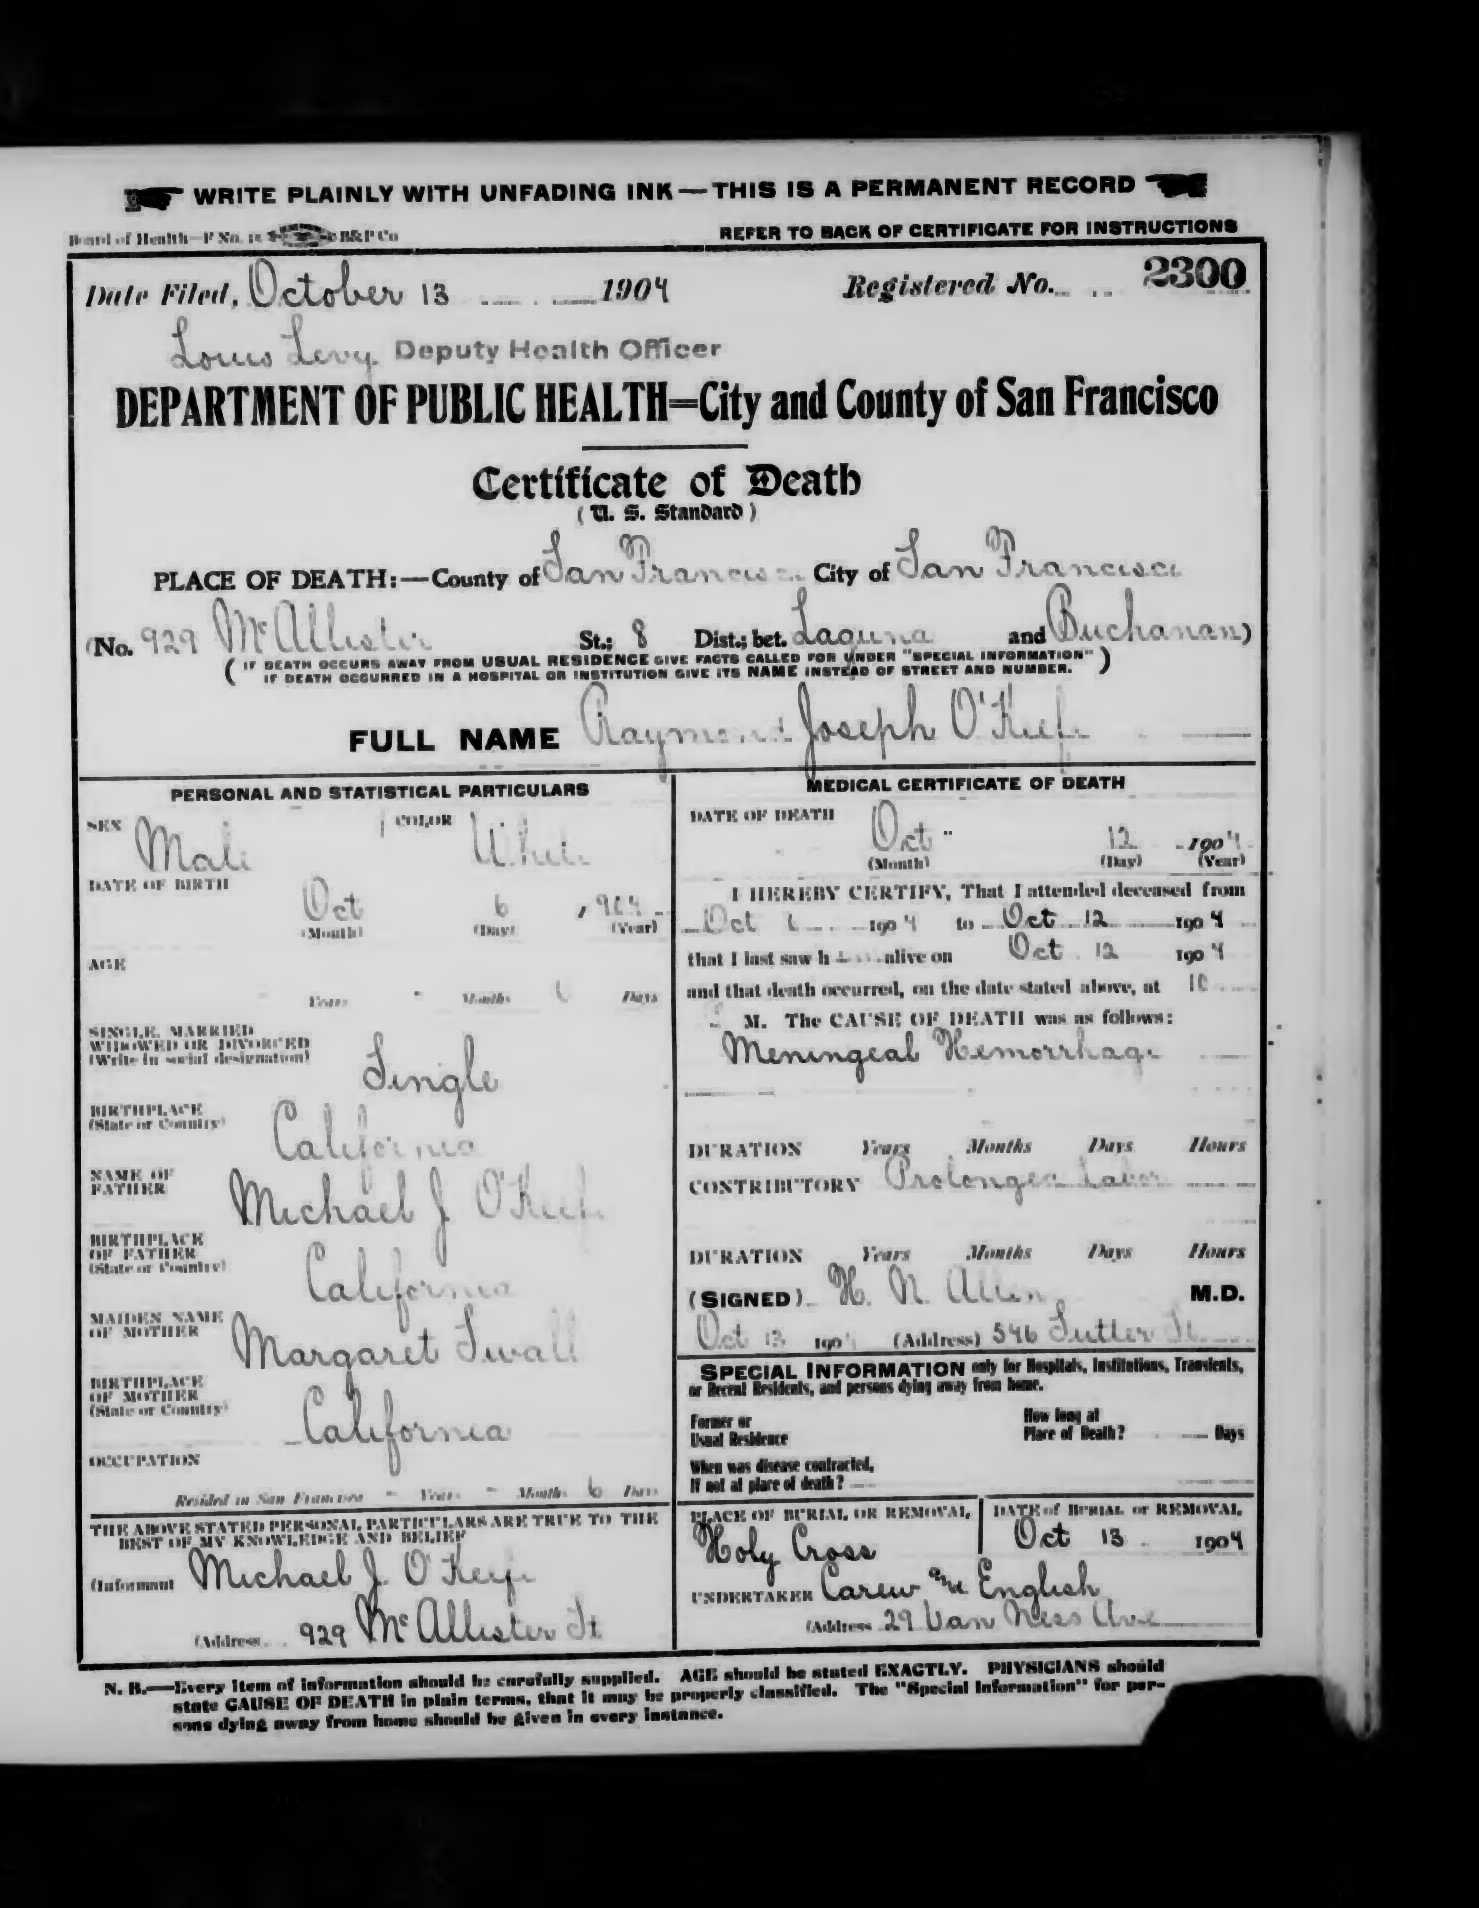 WRITE PLAINLY WITH UNFADING INK—THIS IS A PERMANENT RECORD
Board of Health—F No. 15 B&P Co
REFER TO BACK OF CERTIFICATE FOR INSTRUCTIONS
Date Filed, October 13 1904 Registered No. 2300
Louis Levy Deputy Health Officer
DEPARTMENT OF PUBLIC HEALTH=City and County of San Francisco
Certificate of Death
(U. S. Standard)
PLACE OF DEATH:—County of San Francisco City of San Francisco
(No. 929 McAllister St.; 8 Dist.; bet. Laguna and Buchanan)
(IF DEATH OCCURS AWAY FROM USUAL RESIDENCE GIVE FACTS CALLED FOR UNDER "SPECIAL INFORMATION"
IF DEATH OCCURRED IN A HOSPITAL OR INSTITUTION GIVE ITS NAME INSTEAD OF STREET AND NUMBER.)
FULL NAME Raymond Joseph O'Keefe
PERSONAL AND STATISTICAL PARTICULARS
SEX Male COLOR White
DATE OF BIRTH
Oct 6 1904
(Month) (Day) (Year)
AGE
- Years - Months 6 Days
SINGLE, MARRIED
WIDOWED OR DIVORCED
(Write in social designation)
Single
BIRTHPLACE
(State or Country)
California
NAME OF
FATHER
Michael J O'Keefe
BIRTHPLACE
OF FATHER
(State or Country)
California
MAIDEN NAME
OF MOTHER
Margaret Swall
BIRTHPLACE
OF MOTHER
(State or Country)
California
OCCUPATION
Resided in San Francisco - Years - Months 6 Days
THE ABOVE STATED PERSONAL PARTICULARS ARE TRUE TO THE
BEST OF MY KNOWLEDGE AND BELIEF
(Informant Michael J. O'Keefe
(Address 929 McAllister St
MEDICAL CERTIFICATE OF DEATH
DATE OF DEATH
Oct 12 1904
(Month) (Day) (Year)
I HEREBY CERTIFY, That I attended deceased from
Oct 6 1904 to Oct 12 1904
that I last saw h alive on Oct 12 1904
and that death occurred, on the date stated above, at 10
M. The CAUSE OF DEATH was as follows:
Meningeal Hemorrhage
DURATION Years Months Days Hours
CONTRIBUTORY Prolonged Labor
DURATION Years Months Days Hours
(SIGNED) H. N. Allen M.D.
Oct 13 1904 (Address) 546 Sutter St.
SPECIAL INFORMATION only for Hospitals, Institutions, Transients,
or Recent Residents, and persons dying away from home.
Former or
Usual Residence
How long at
Place of Death? Days
When was disease contracted,
If not at place of death?
PLACE OF BURIAL OR REMOVAL
Holy Cross
DATE of BURIAL or REMOVAL
Oct 13 1904
UNDERTAKER Carew and English
(Address 29 Van Ness Ave
N. B.—Every item of information should be carefully supplied. AGE should be stated EXACTLY. PHYSICIANS should
state CAUSE OF DEATH in plain terms, that it may be properly classified. The "Special Information" for per-
sons dying away from home should be given in every instance.